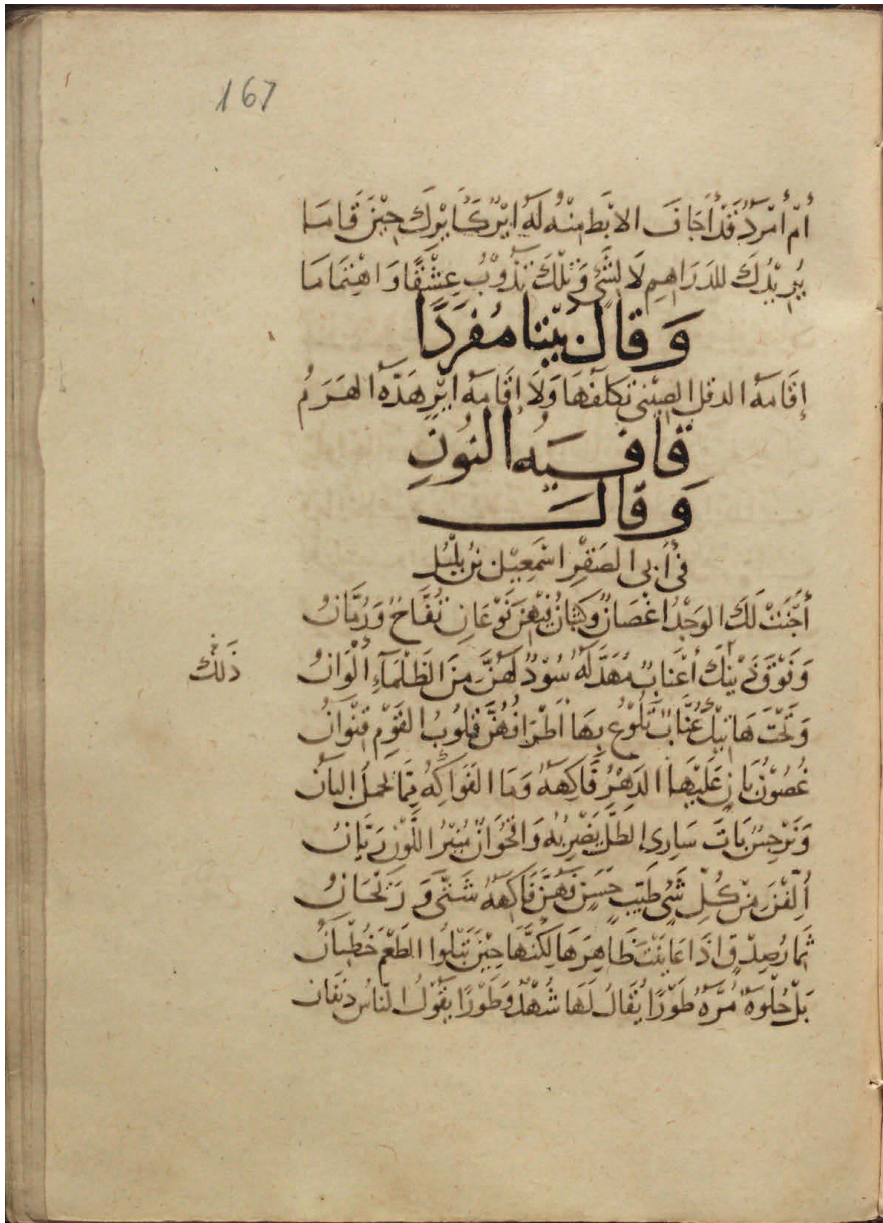 167
أمْ أمْرَدٌ قَدْ أَجَافَ الابْطَ مِنْهُ لَهُ ايْرٌ كَايْرِكَ حِيْنَ قَامَا
يُرِيْدُكَ للدَرَاهِمِ لَا لِشَيْءٍ وَتِلْكَ تَذُوْبُ عِشْقًا وَاهْتِمَامَا
وَقَالَ بَيْتًا مُفْرَدًا
إقَامَهُ الدقل الصيني تكلفها وَلَا إقَامَهُ ايْرٍ هَدَّهُ الهَرَمُ
قَافِيَهُ النُونِ
وَقَالَ
فِي أَبي الصَقْرِ اسْمَعِيْل بْن بُلْبُل
أجْنَتْ لَكَ الوَجْدَ اغْصَانٌ وَكُثْبَانُ فِيْهِنَّ نَوْعَانِ تُفَّاحٌ وَرُمَّانُ
وَفَوْقَ ذَيْنِكَ أعْنَابٌ مُهَدَّلَهٌ سُوْدٌ لَهُنَّ مِنَ الظَلْمَآءِ ألْوَانُ
ذَلِكَ
وَتَحْتَ هَاتِيْكَ عُنَّابٌ تَلُوْعُ بِهَا اَطْرَافُهُنَّ قُلُوْبُ القَوْمِ قِنْوَانُ
غُصُوْنُ بَانٍ عَلَيْهَا الدَهْرُ فَاكِهَهٌ وَمَا الفَوَاكِهُ مِمَّا يَحْمِلُ البَانُ
وَنَرْجِسٌ بَاتَ سَارِي الطَلِّ يَضْرِبُهُ وَاقْحُوَانٌ مُنِيْرُ اللَوْنِ رَيَّانُ
اُلِّفْنَ مِنْ كُلِّ شَيْءٍ طَيِّبٍ حَسَنٍ فَهُنَّ فَاكِهَهٌ شَتَّى وَرَيْحَانُ
ثِمَارُ صِدْقٍ اذَا عَايَنْتَ ظَاهِرَهَا لَكِنَّهَا حِيْنَ تَبْلُوا الطَعْمَ خُطْبَانُ
بَلْ حُلْوَهٌ مُرَّهٌ طَوْرًا يُقَالُ لَهَا شُهْدٌ وَطَوْرًا يَقُوْلُ النَاسُ ذيفَانُ